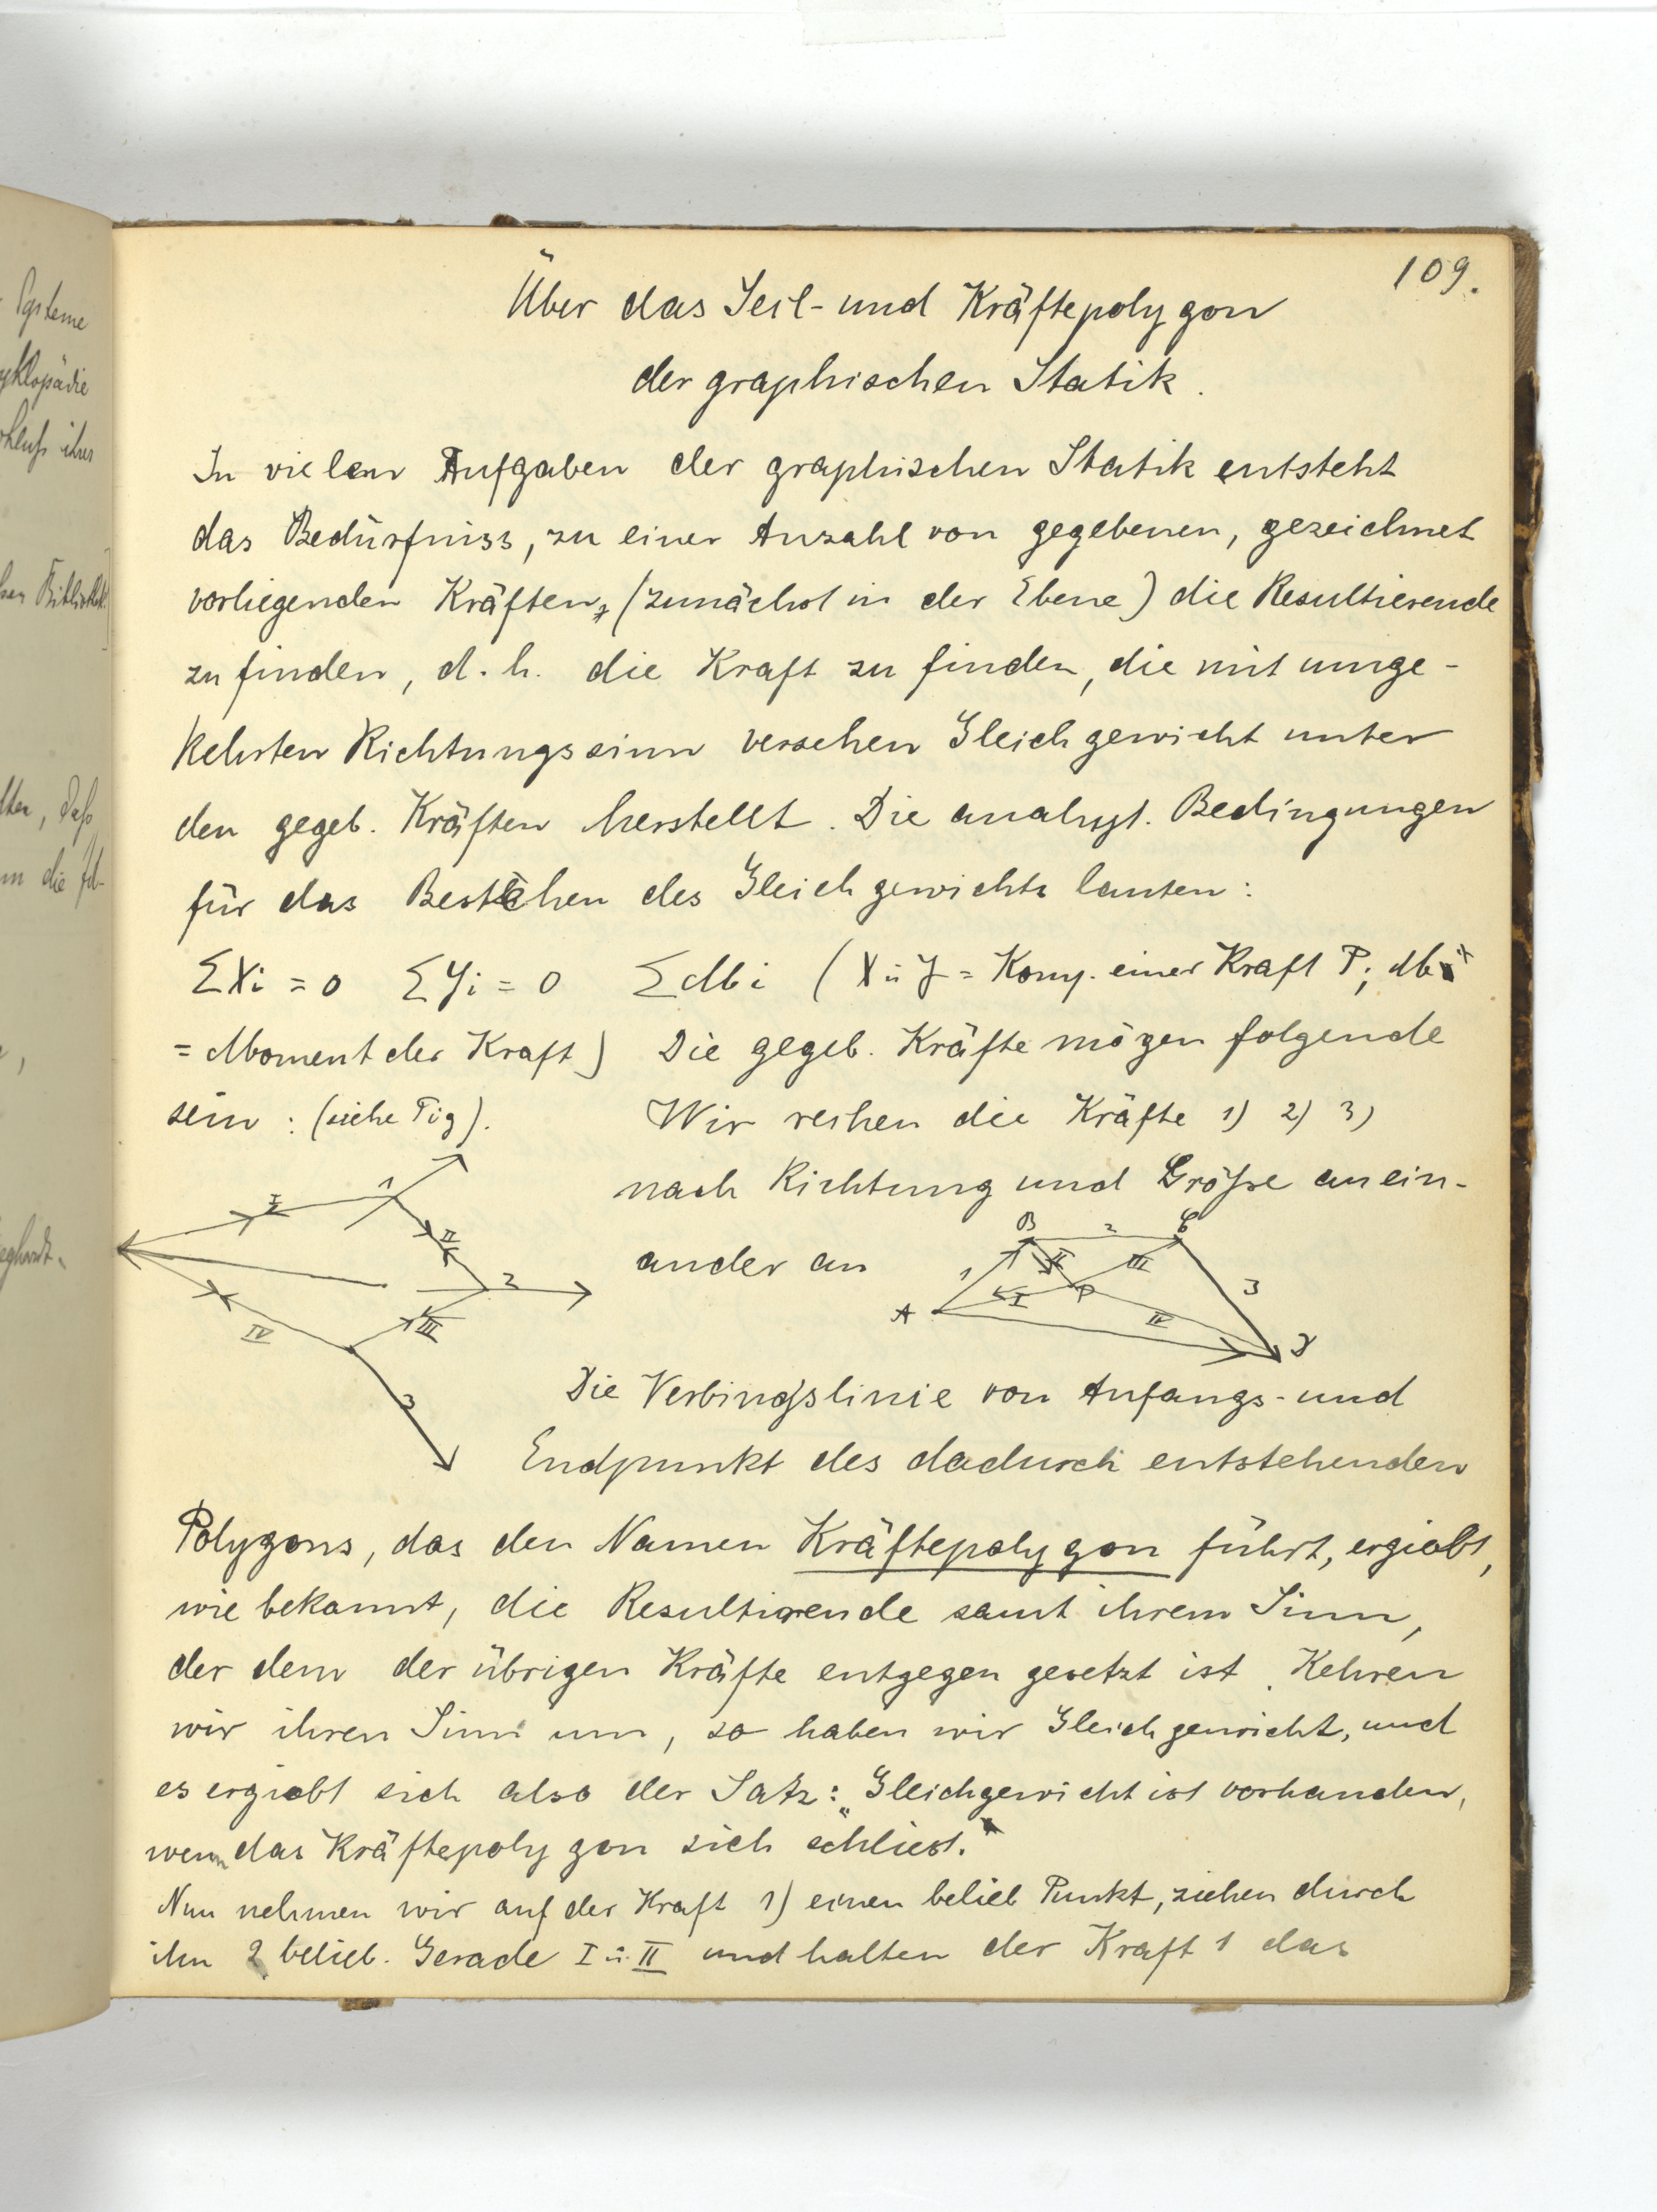 109.
Über das Seil- und Kräftepolygon
der graphischen Statik.
In vielen Aufgaben der graphischen Statik entsteht
das Bedürfniss, zu einer Anzahl von gegebenen, gezeichnet
vorliegenden Kräften, (zunächst in der Ebene) die Resultierende
zu finden, d. h. die Kraft zu finden, die mit umge-
kehrten Richtungssinn versehen Gleichgewicht unter
den gegeb. Kräften herstellt. Die analyt. Bedingungen
für das Bestehen des Gleichgewichts lauten:
ΣXi = 0 ΣYi = 0 ΣMi (X u. Y = Komp. einer Kraft P; M
= Moment der Kraft) Die gegeb. Kräfte mögen folgende
sein: (siehe Fig). Wir reihen die Kräfte 1) 2) 3)
nach Richtung und Größe anein-
ander an
1
I
II
2
III
IV
3
B 2 C
II III
1 3
I P
A IV D
Die Verbindgslinie von Anfangs- und
Endpunkt des dadurch entstehenden
Polygons, das den Namen Kräftepolygon führt, ergiebt,
wie bekannt, die Resultirende samt ihrem Sinn,
der dem der übrigen Kräfte entgegen gesetzt ist. Kehren
wir ihren Sinn um, so haben wir Gleichgewicht, und
es ergiebt sich also der Satz: „Gleichgewicht ist vorhanden,
wenn das Kräftepolygon sich schliest."
Nun nehmen wir auf der Kraft 1) einen belieb Punkt, ziehen durch
ihn 2 belieb. Gerade I u. II und halten der Kraft 1 das
Systeme
yklopädie
ihrer
Bibliothek
lten, daß
die